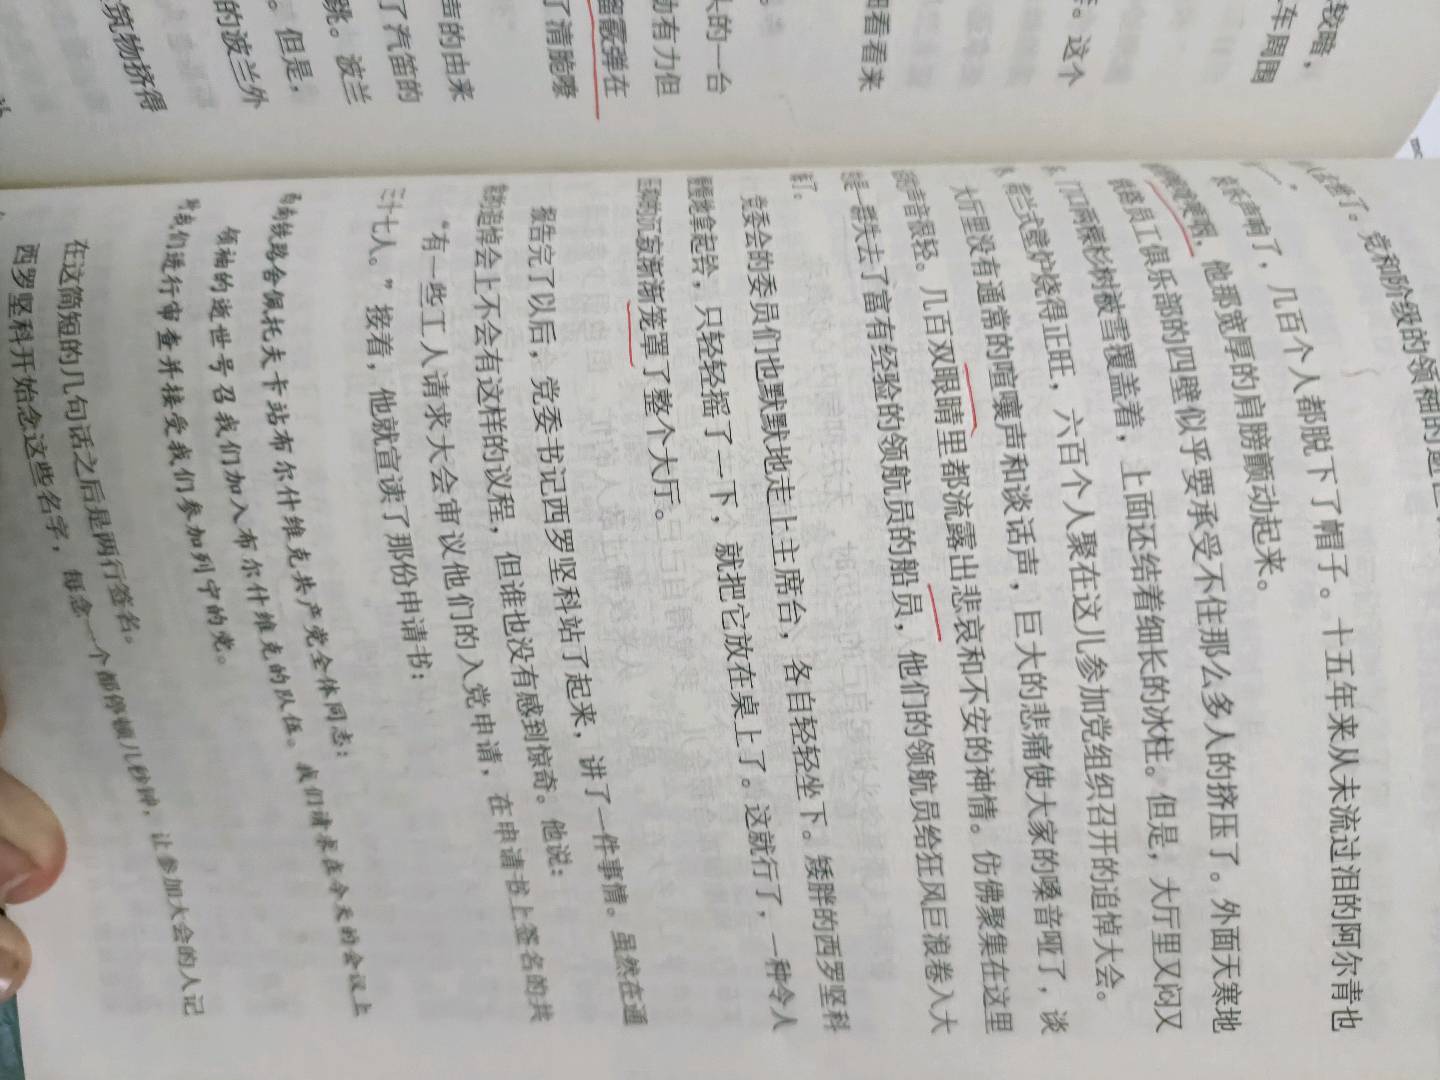 车周围
。这个
看看来
的一台
有力但
了清脆嘹
榴霰弹在
声的由来
了汽笛的
跳。波兰
。但是，
的波兰外
筑物挤得
了。党和阶级的领袖的逝
声响了，几百个人都脱下了帽子。十五年来从未流过泪的阿尔青也
，他那宽厚的肩膀颤动起来。
员工俱乐部的四壁似乎要承受不住那么多人的挤压了。外面天寒地
门口两棵杉树被雪覆盖着，上面还结着细长的冰柱。但是，大厅里又闷又
栏式壁炉烧得正旺，六百个人聚在这儿参加党组织召开的追悼大会。
大厅里没有通常的喧嚷声和谈话声，巨大的悲痛使大家的嗓音哑了，谈
声音很轻。几百双眼睛里都流露出悲哀和不安的神情。仿佛聚集在这里
是一群失去了富有经验的领航员的船员，他们的领航员给狂风巨浪卷入大
了。
党委会的委员们也默默地走上主席台，各自轻轻坐下。矮胖的西罗坚科
地拿起铃，只轻轻摇了一下，就把它放在桌上了。这就行了，一种令人
压抑的沉寂渐渐笼罩了整个大厅。
报告完了以后，党委书记西罗坚科站了起来，讲了一件事情。虽然在通
常的追悼会上不会有这样的议程，但谁也没有感到惊奇。他说：
“有一些工人请求大会审议他们的入党申请，在申请书上签名的共
三十七人。”接着，他就宣读了那份申请书：
西南铁路舍佩托夫卡站布尔什维克共产党全体同志：
领袖的逝世号召我们加入布尔什维克的队伍。我们请求在今天的会议上
对我们进行审查并接受我们参加列宁的党。
在这简短的几句话之后是两行签名。
西罗坚科开始念这些名字，每念一个都停顿几秒钟，让参加大会的人记